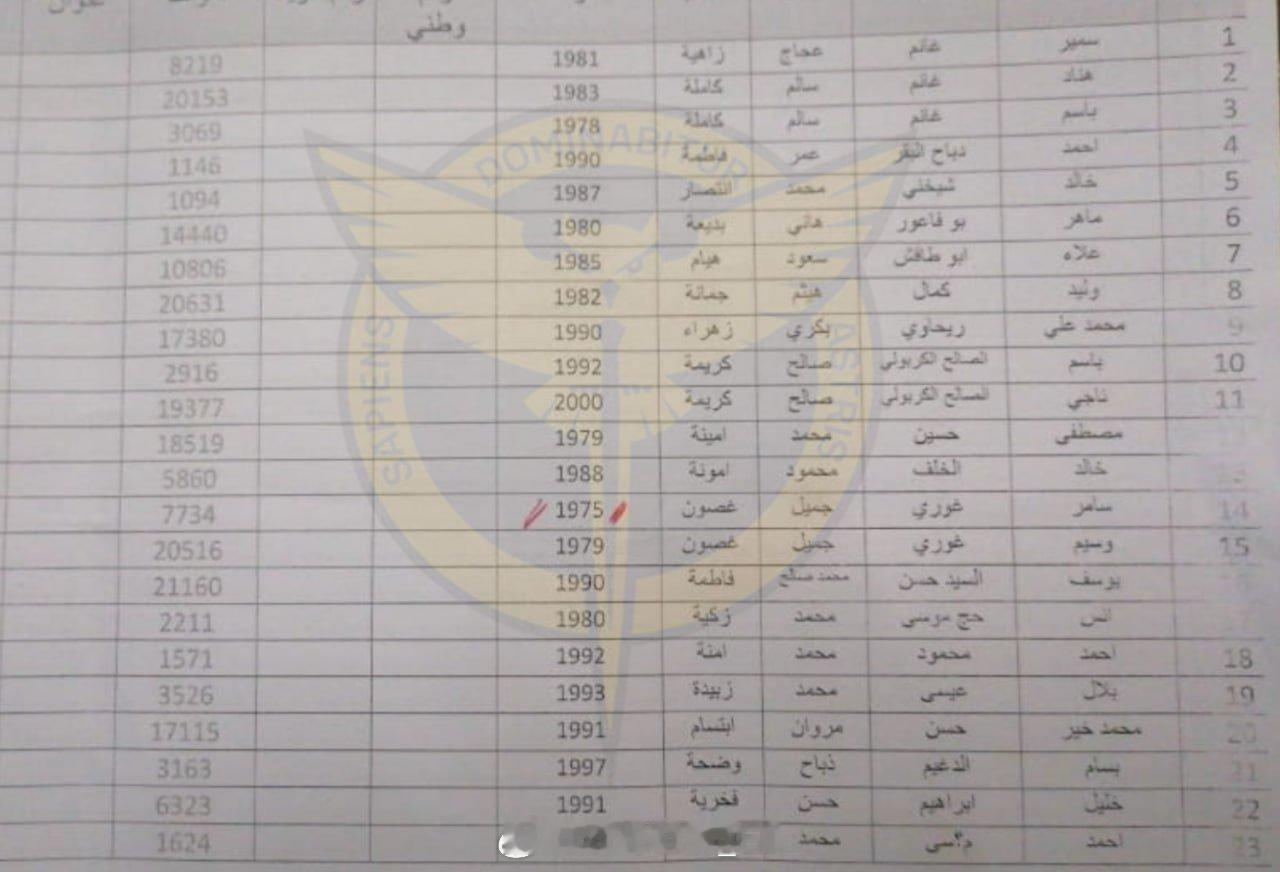 وطني
1 سمير غانم عجاج زاهية 1981 8219
2 هناد غانم سالم كاملة 1983 20153
3 باسم غانم سالم كاملة 1978 3069
4 احمد دباح البقر عمر فاطمة 1990 1146
5 خالد شيخني محمد انتصار 1987 1094
6 ماهر بو فاعور هاني بديعة 1980 14440
7 علاء ابو طافش سعود هيام 1985 10806
8 وليد كمال هيثم جمانة 1982 20631
9 محمد علي ريحاوي بكري زهراء 1990 17380
10 باسم الصالح الكربولي صالح كريمة 1992 2916
11 ناجي الصالح الكربولي صالح كريمة 2000 19377
مصطفى حسين محمد امينة 1979 18519
خالد الخلف محمود امونة 1988 5860
14 سامر غوري جميل غصون 1975 7734
15 وسيم غوري جميل غصون 1979 20516
يوسف السيد حسن محمد صالح فاطمة 1990 21160
انس حج موسى محمد زكية 1980 2211
18 احمد محمود محمد امنة 1992 1571
19 بلال عيسى محمد زبيدة 1993 3526
20 محمد خير حسن مروان ابتسام 1991 17115
21 بسام الدغيم ذباح وضحة 1997 3163
22 خليل ابراهيم حسن فخرية 1991 6323
23 احمد م؟سى محمد 1624
DOMINABITUR
SAPIENS
ASTRIS